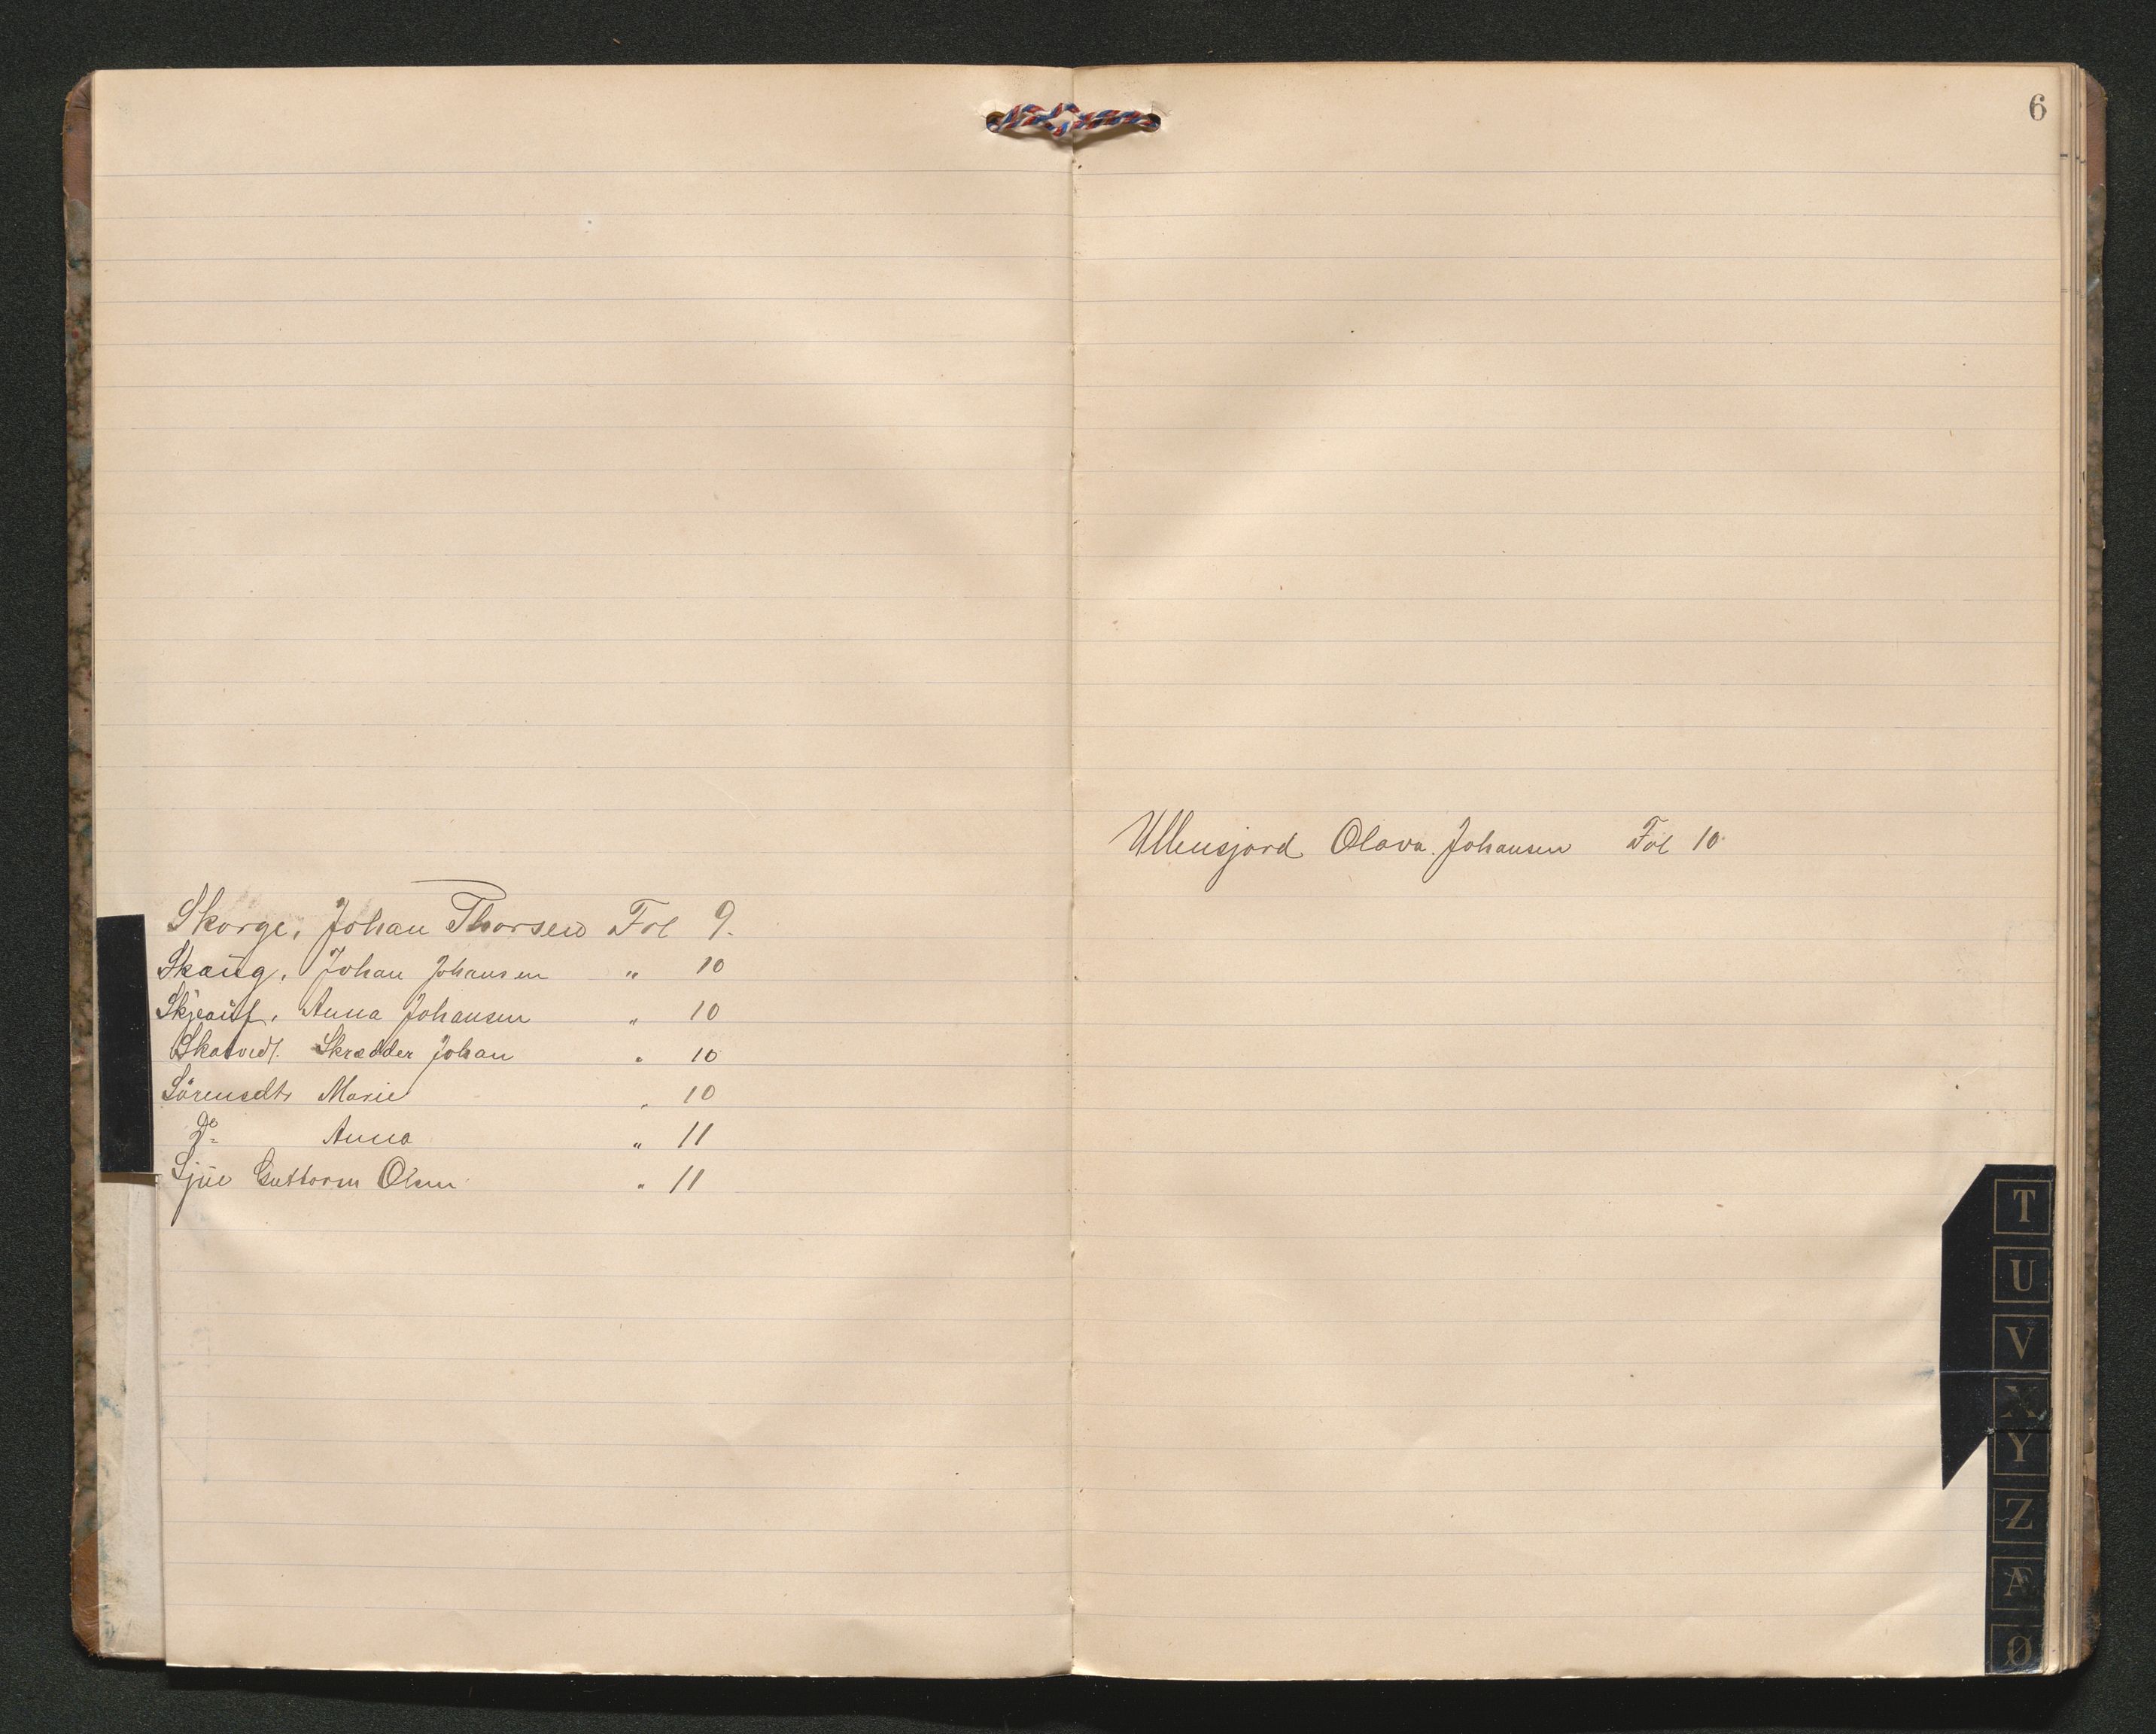 Skorge, Johan Thorsen Fol 9.
Skaug, Johan Johansen " 10
Anna Johansen " 10
Skrædder Johan " 10
Marie " 10
Do Anna " 11
Guttorm Olsen " 11
6
Olava Johansen Fol 10
T
U
V
X
Y
Z
Æ
Ø